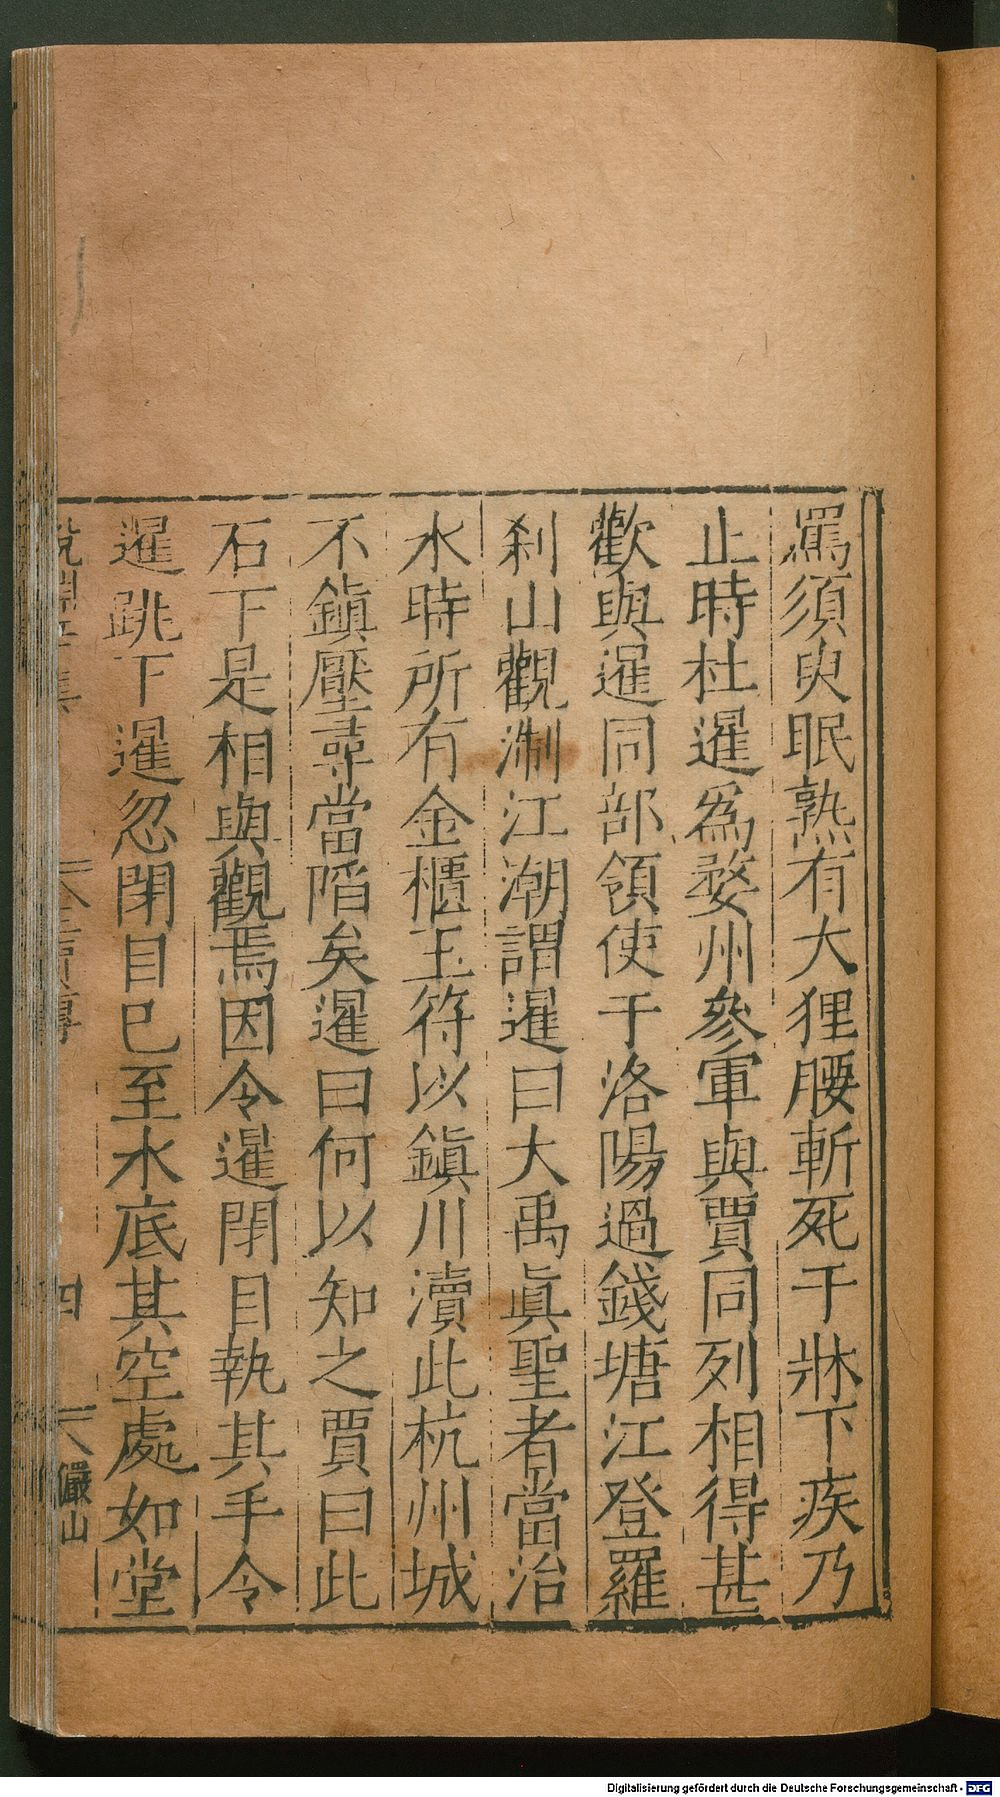 罵須臾眠熟有大狸腰斬死于牀下疾乃
止時杜暹爲婺州參軍與賈同列相得甚
歡與暹同部領使于洛陽過錢塘江登羅
刹山觀淛江潮謂暹曰大禹眞聖者當治
水時所有金櫃玉符以鎭川瀆此杭州城
不鎭壓尋當陷矣暹曰何以知之賈曰此
石下是相與觀焉因令暹閉目執其手令
暹跳下暹忽閉目已至水底其空處如堂
四 儼山
Digitalisierung gefördert durch die Deutsche Forschungsgemeinschaft - DFG